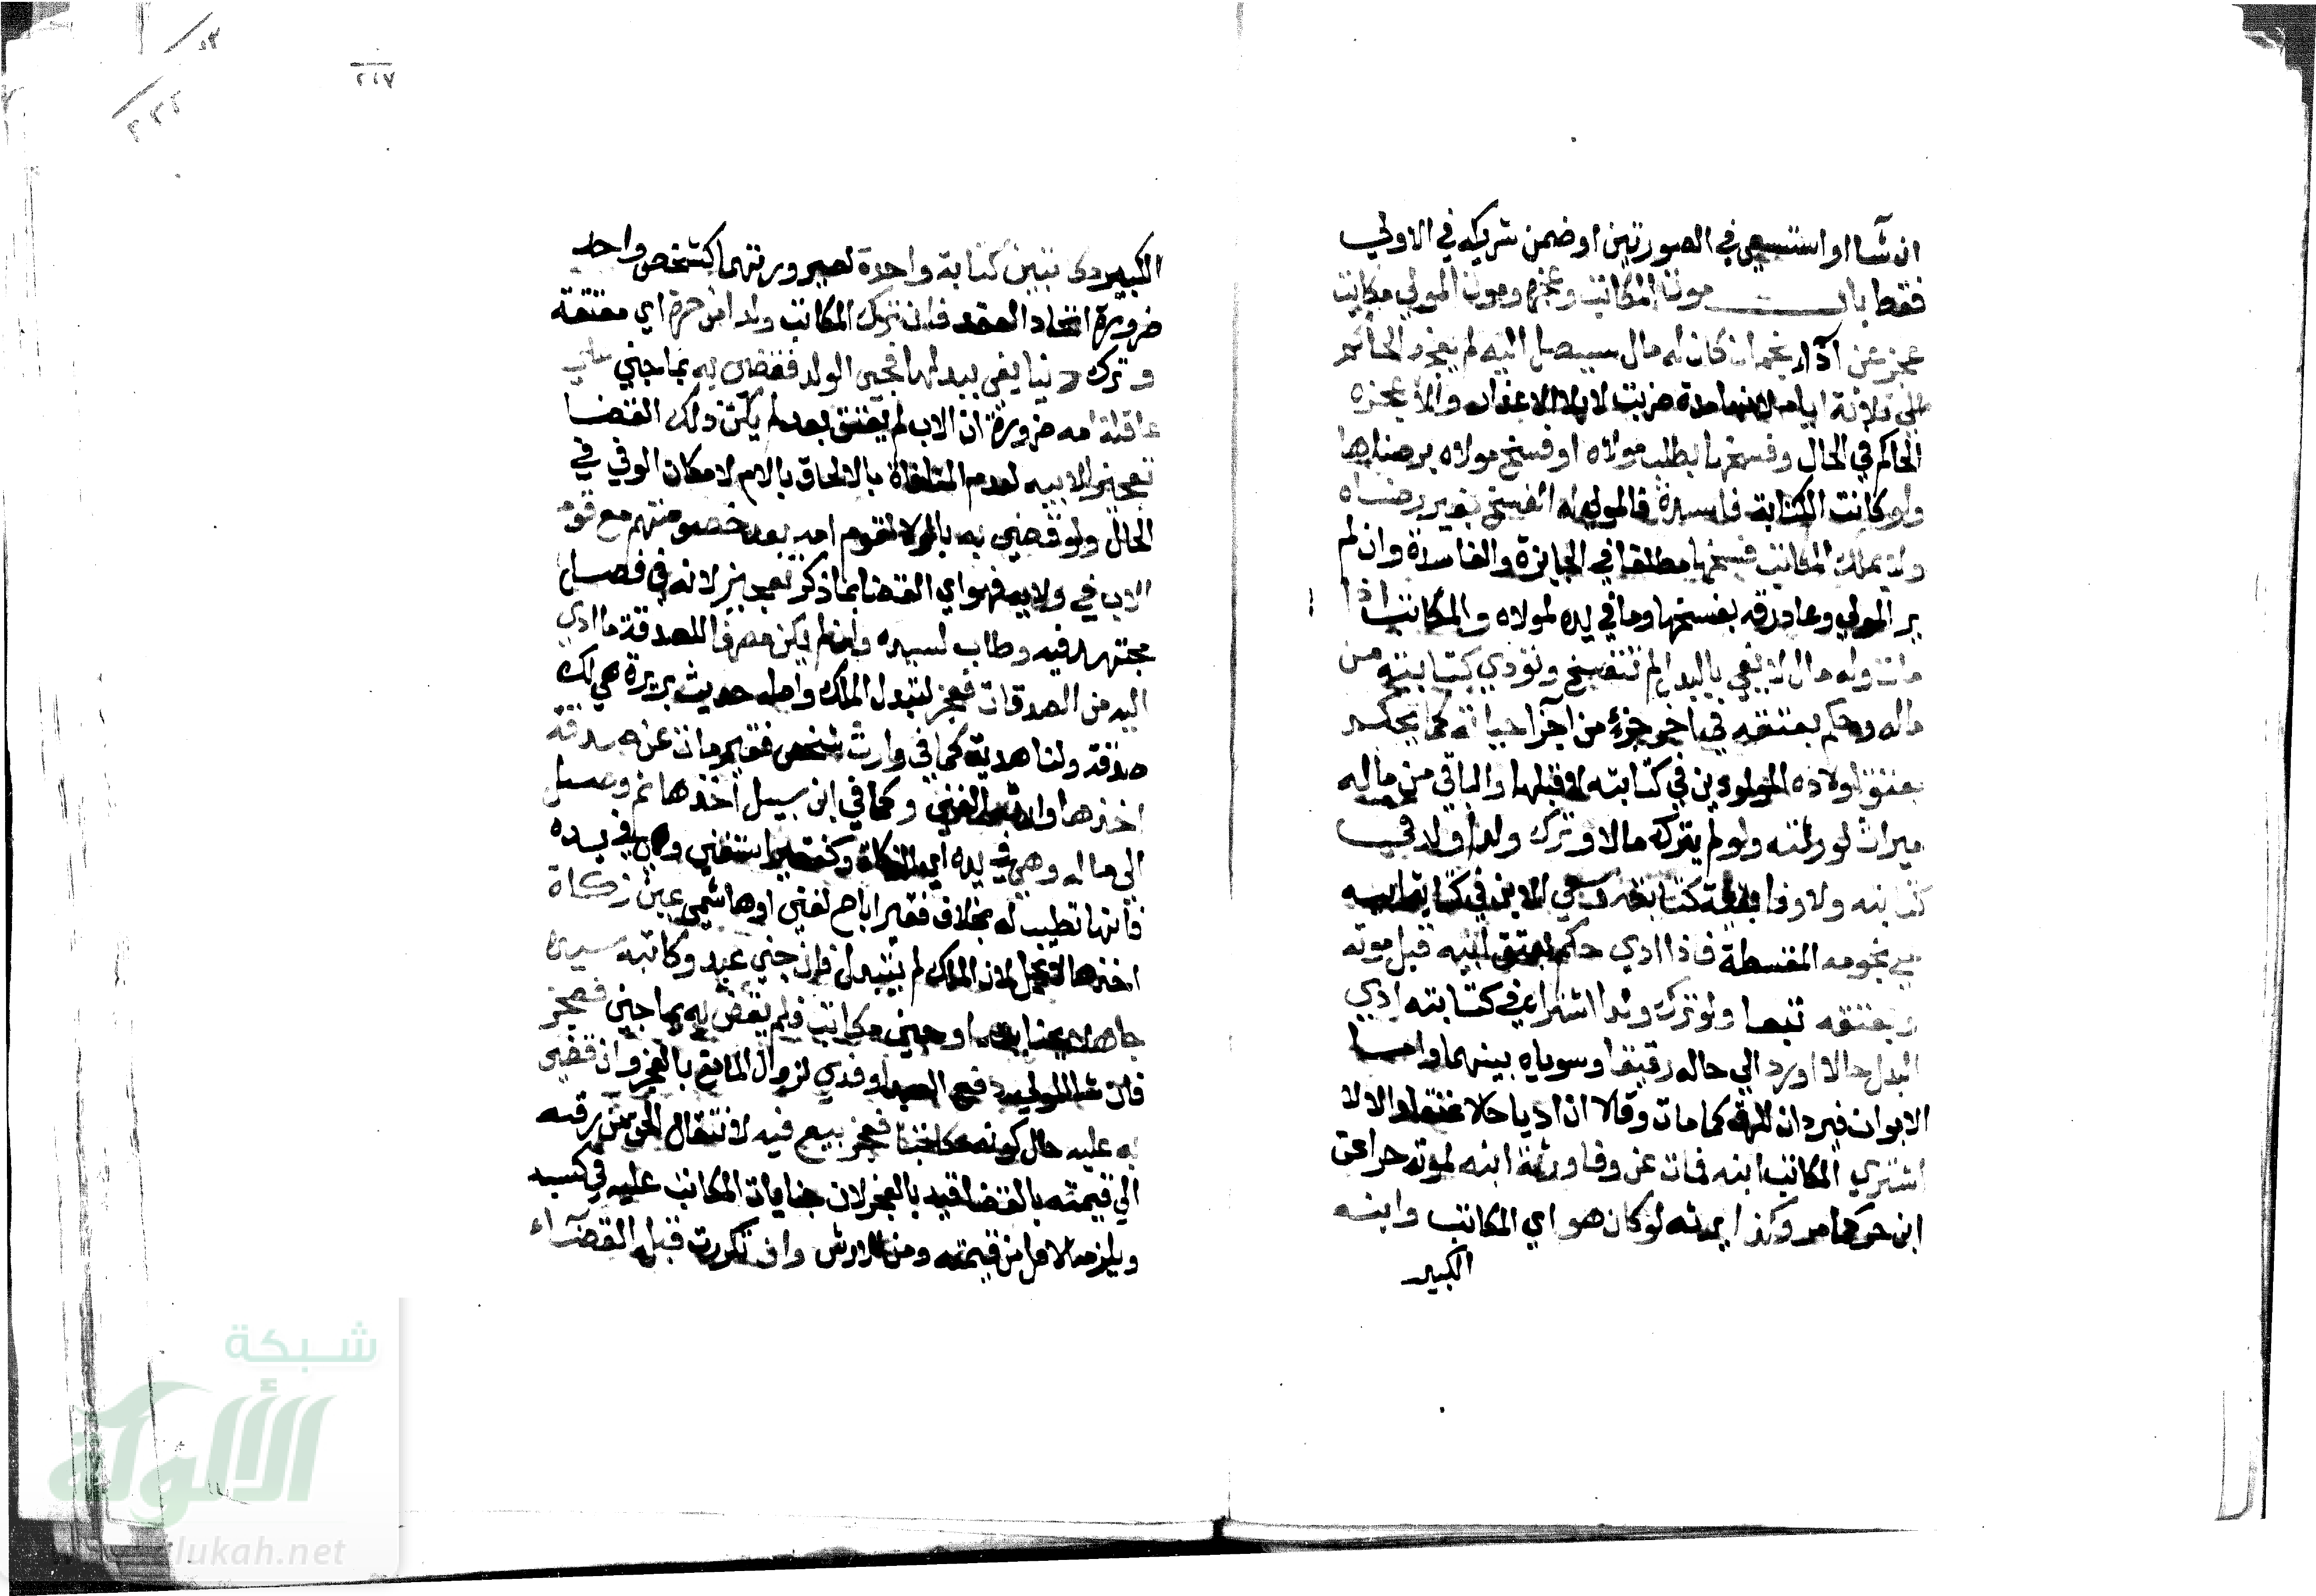 ان شآ او استسعي في الصورتين او ضمن شريكه في الاولي
فقط باب موت المكاتب وعجزه وموت المولي مكاتب
عجز عن أدآء نجم ان كان له مال سيصل اليه لم يعجزه الحاكم
الي ثلاثة ايام لانها مدة ضربت لابلا الاعذار والا عجزه
الحاكم في الحال وفسخها بطلب مولاه او فسخ مولاه برضاه
ولو كانت الكتابة فاسدة فالمولي له الفسخ بغير رضاه
ولا يملك المكاتب فسخها مطلقا في الجايزة والفاسدة وان لم
ير المولي وعاد رقه بفسخها وما في يده لمولاه والمكاتب اذا
مات وله مال يفي بالبدل لم تنفسخ وتؤدي كتابته من
ماله وحكم بعتقه في اخر جزء من اجزآ حياته كما يحكم
بعتق اولاده المولودين في كتابته او قبلها والباقي من ماله
ميراث لورثته ولو لم يترك مالا وترك ولدا ولد في
كتابته ولا وفا كتابته سعي الابن في كتابة ابيه
علي نجومه المقسطة فاذا ادي حكم بعتق ابيه قبل موته
وبعتقه تبعا ولو ترك ولدا اشتراه في كتابته ادي
البدل حالا او رد الي حاله رقيقا وسوياه بينهما واما
الابوان فيردان للرق كما مات وقالا ان اديا حالا عتقا والا لا
اشتري المكاتب ابنه فمات عن وفا ورثه ابنه لموته حرا عن
ابن حر كما مر وكذا يرثه لو كان هو اي المكاتب وابنه
الكبير
٢٤٧
الكبير مكاتبين كتابة واحدة لصيرورتهما كشخص واحد
ضرورة اتحاد العقد فان ترك المكاتب ولدا من حرة اي معتقة
وترك دينا يفي ببدلها فجني الولد فقضي به بما جني علي
عاقلة امه ضرورة ان الاب لم يعتق بعد لم يكن ذلك القضا
تعجيز الابيه لعدم المنافاة بالالحاق بالام لامكان الوفي في
الحال ولو قضي به بالولا لقوم امه بعد خصومتهم مع قوم
الاب في ولايه فهو اي القضا بما ذكر تعجيز لانه في فصل
مجتهد فيه وطاب لسيده وان لم يكن مصرفا للصدقة ما ادي
اليه من الصدقات فعجز لتبدل الملك واصله حديث بريرة هي لك
صدقة ولنا هدية كما في وارث شخص فقير مات عن صدقة
اخذها وارثه الغني وكما في ابن سبيل اخذها ثم وصل
الي ماله وهي في يده اي الزكاة وكفقير استغني وهي في يده
فانها تطيب له بخلاف فقير اباح لغني او هاشمي عين زكاة
اخذها لا يحل لان الملك لم يتبدل فان جني عبد وكاتبه سيده
جاهلا بجنايته او جني مكاتب فلم يقض به بما جني فعجز
فان شا المولي دفع العبد او فدي لزوال المانع بالعجز وان قضي
به عليه حال كونه مكاتبا فعجز بيع فيه لانتقال الحق من رقبته
الي قيمته بالقضا قيد بالعجز لان جنايات المكاتب عليه في كسبه
ويلزمه الاقل من قيمته ومن الارش وان تكررت قبل القضآء
شبكة
الألوكة
lukah.net